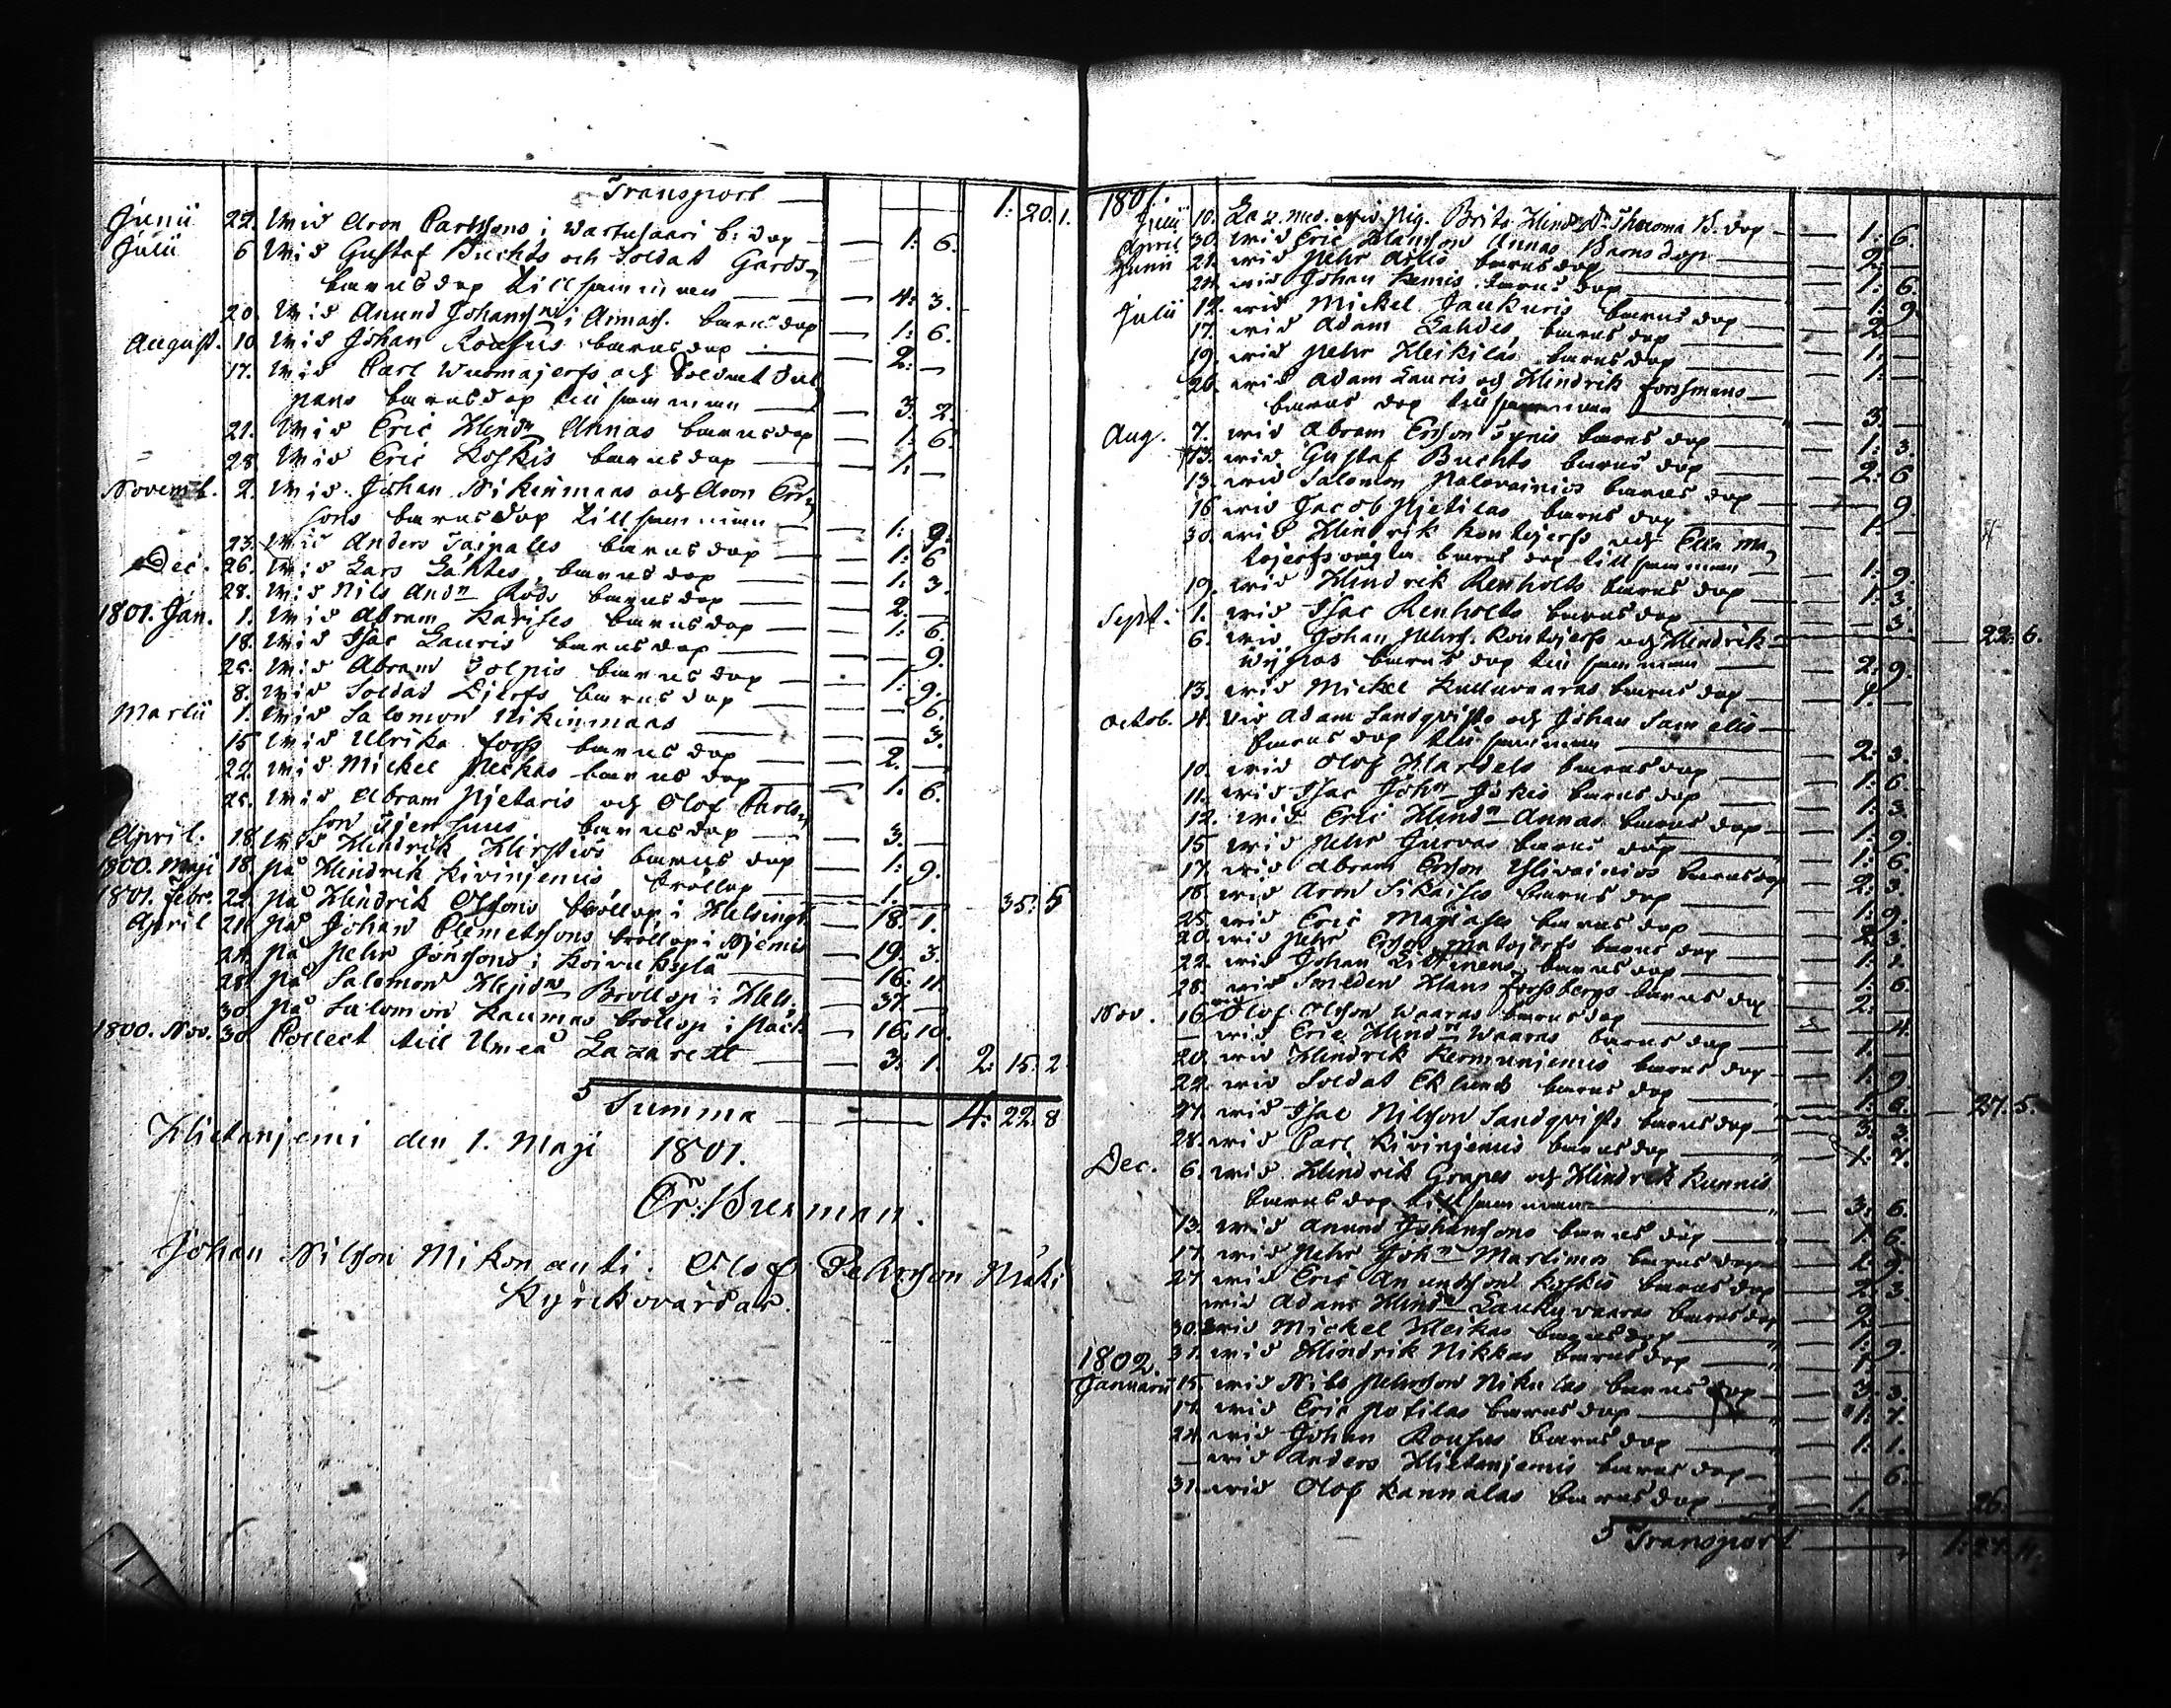 Transport — 1: 20. 1.
Junii 22. Wid Aron Carlssons i Wartusaari b: dop — 1: 6.
Julii 6 Wid Gustaf Buchts och Soldat Gards,
barnsdop tillsamman — 4: 3.
20. Wid Anund Johanss i Annas. barnsdop — 1: 6.
August. 10 Wid Johan Roufus barnsdop — 2: —
17. Wid Carl Wuomajerfs och Soldat
barnsdop tillsamman — 3. 2.
21. Wid Eric Hindn Annas barnsdop — 1: 6
28. Wid Eric Koskis barnsdop — 1: —
Novemb. 2. Wid Johan Nikinmaas och Aron Ers,
sons barnsdop tillsamman — 1: 9.
23. Wid Anders Taipales barnsdop — 1: 6
Dec. 26. Wid Lars Lahtes, barnsdop — 1: 3.
28. Wid Nils Andn Rods barnsdop — 2. —
1801. Jan. 1. Wid Abram barnsdop — 1: 6.
18. Wid Isac Lauris barnsdop — 9.
25. Wid Abram Tolpis barnsdop — 1: 9.
8. Wid Soldat barnsdop — 6.
Martii 1. Wid Salomon Nikinmaas — 3.
15 Wid Ulrika Forss barnsdop — 2. —
22. Wid Mickel Pekkas barnsdop — 1: 6.
25. Wid Abram Pietaris och Olof Carls,
son barnsdop — 3. —
April. 18. Wid Hindrik barnsdop — 1: 9.
1800. Maji 18. på Hindrik Kivinjemis, bröllop — 1. — 35: 5
1801. Febr. 22. på Hindrik Olssons bröllop i Helsingb — 18: 1.
April 21. på Johan Clemetssons bröllop i Njemis — 19. 3.
24. på Pehr Jönssons i Koivukylä — 16: 11.
28. på Salomon Hejidn Bröllop i Hels. — 37 —
30. på Salomon Kaumas bröllop i — 16. 10.
1800. Nov. 30. Collect till Umeå Lazarett — 3. 1. 2: 15. 2
Summa — 4: 22. 8
Hietanjemi den 1. Maji 1801.
Er: Burman.
Johan Nilsson Mikonanti. Olof Pehrsson Niuki
Kyrckovärdar.
1801.
Julii 10. Laz. med. wid Pig. Brita Hindr Dr Theroma B. dop — 1: 6.
April 30. wid Eric Hansson Annas Barnsdop — 2: —
Junii 21. wid Pehr barnsdop — 1: 6.
24. wid Johan Kemis barnsdop — 1: 9
Julii 12. wid Mickel Jaukuris barnsdop — 2 —
17. wid Adam Lahdes, barnsdop — 1: —
19. wid Pehr Heikilas barnsdop — 1: —
26. wid Adam Lauris och Hindrik Forssmans
barnsdop tillsamman — 3. —
Aug. 7. wid Abram Ersson barnsdop — 1: 3.
13. wid Gustaf Buchts barnsdop — 2: 6
13. wid Salomon Palovainios barnsdop — 9
16 wid Jacob Pietilas barnsdop — 1: —
30. wid Hindrik Kontojerfs och Elin Ma,
tojerfs barnsdop tillsamman — 1: 9.
19. wid Hindrik Renholts barnsdop — 1: 3.
Sept. 1. wid Isac Renholts barnsdop — 3. — 22. 6.
6. wid Johan Pehrs. Kontojerfs och Hindrik
barnsdop tillsamman — 2: 9.
13. wid Mickel Kulluvaaras barnsdop — 1. —
Octob. 4. Wid Adam Sandqvists och Johan Samelis
barnsdop tillsamman — 2: 3.
10. wid Olof Hardels barnsdop — 1: 6.
11. wid Isac John Jokis barnsdop — 1: 3
12. wid Eric Hindn Annas barnsdop — 1: 9.
15. wid Pehr barnsdop — 1: 6.
17. wid Abram Ersson Ylivainios barnsdop — 2: 3.
18. wid Aron barnsdop — 1: 9.
25. wid Eric barnsdop — 2: 3.
20. wid Pehr Ersson Matojerfs barnsdop — 1: 1.
22. wid Johan barnsdop — 1: 6.
28. wid Smeden Hans Forssbergs barnsdop — 2: —
Nov. 16 wid Olof Olsson Waaras barnsdop — 4.
— wid Eric Hindn Waaras barnsdop — 1: —
20. wid Hindrik Kermunjemis barnsdop — 1: 9
22. wid Soldat Eklunds barnsdop — 1: 6. — 27. 5.
27. wid Isac Nilsson Sandqvists barnsdop — 3. 3.
28. wid Carl Kivinjemis barnsdop — 1: 7.
Dec. 6. wid Hindrik Grapes och Hindrik Kunnis
barnsdop tillsamman — 3: 6.
13. wid Anund Johanssons barnsdop — 1: 6.
17. wid Pehr John Martimos barnsdop — 1: 9.
27. wid Eric Anundssons Koskis barnsdop — 2: 3.
wid Adam Hindn Laukuvaaras barnsdop — 2: —
30. wid Mickel Heikas barnsdop — 1: 9.
31. wid Hindrik Nikkas barnsdop — 1: —
1802.
Januarii 15. wid Nils Pehrsson Nikulas barnsdop — 3. 3.
17. wid Eric Potilas barnsdop — 1: 7.
24. wid Johan Roufus barnsdop — 1: 1.
— wid Anders Hietanjemis barnsdop — 6.
31. wid Olof Kannalas barnsdop — 1. — 26.
Transport — 1: